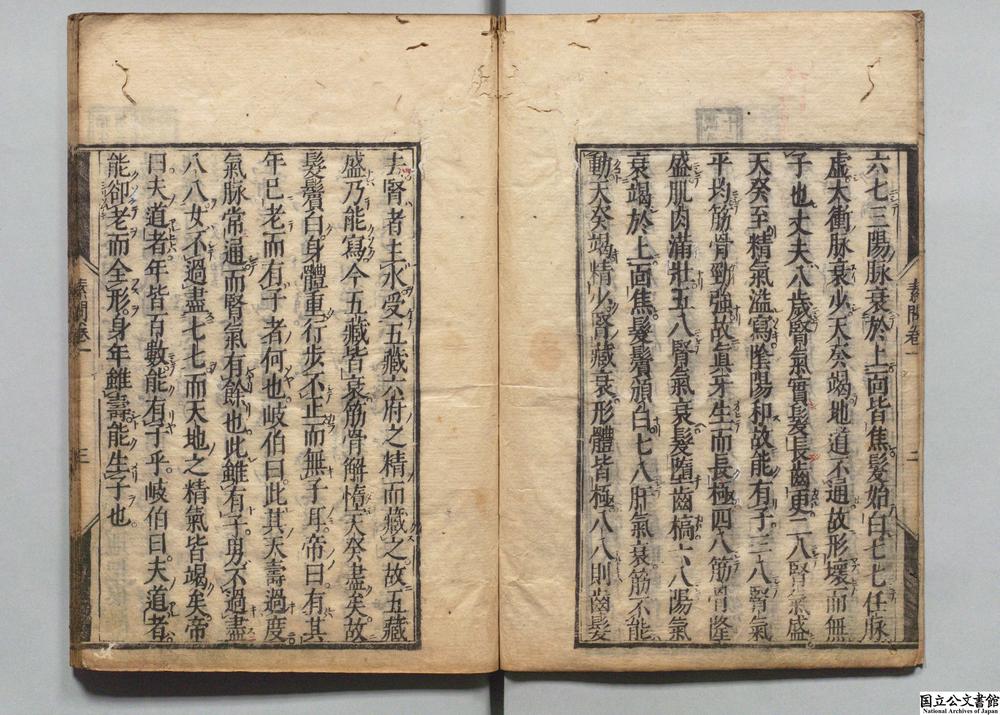 六七三陽脉衰於上面皆焦髮始白七七任脉
虛太衝脉衰少天癸竭地道不通故形壞而無
子也丈夫八歲腎氣實髮長齒更二八腎氣盛
天癸至精氣溢寫陰陽和故能有子三八腎氣
平均筋骨勁強故眞牙生而長極四八筋骨隆
盛肌肉滿壯五八腎氣衰髮墮齒槁六八陽氣
衰竭於上面焦髮鬢頒白七八肝氣衰筋不能
動天癸竭精少腎藏衰形體皆極八八則齒髮
素問卷一
二
去腎者主水受五藏六府之精而藏之故五藏
盛乃能寫今五藏皆衰筋骨解憜天癸盡矣故
髮鬢白身體重行步不正而無子耳帝曰有其
年已老而有子者何也岐伯曰此其天壽過度
氣脉常通而腎氣有餘也此雖有子男不過盡
八八女不過盡七七而天地之精氣皆竭矣帝
曰夫道者年皆百數能有子乎岐伯曰夫道者
能卻老而全形身年雖壽能生子也
素問卷一
三
国立公文書館
National Archives of Japan